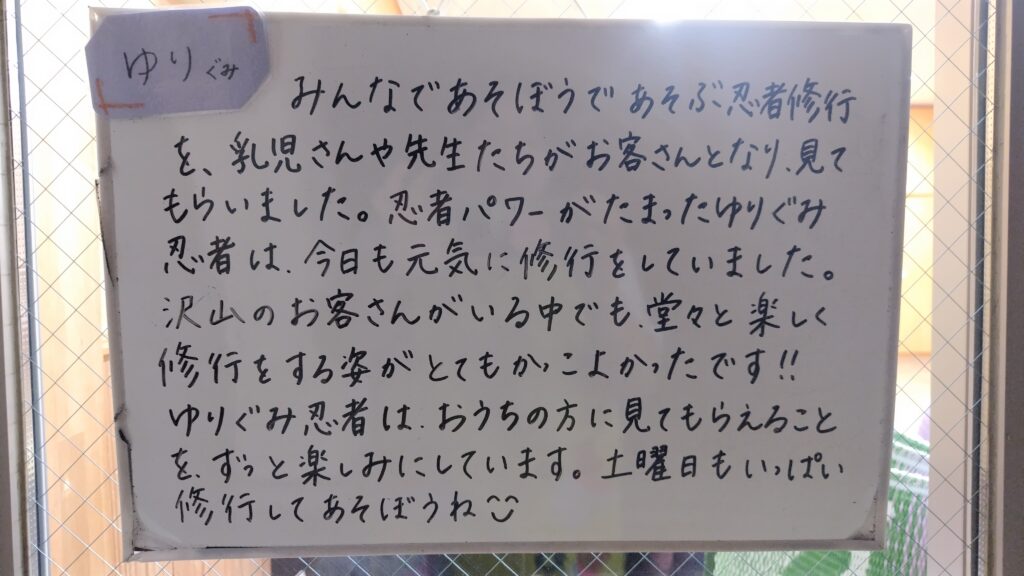 ゆりぐみ
みんなであそぼうであそぶ忍者修行
を、乳児さんや先生たちがお客さんとなり、見て
もらいました。忍者パワーがたまったゆりぐみ
忍者は、今日も元気に修行をしていました。
沢山のお客さんがいる中でも、堂々と楽しく
修行をする姿がとてもかっこよかったです!!
ゆりぐみ忍者は、おうちの方に見てもらえること
を、ずっと楽しみにしています。土曜日もいっぱい
修行してあそぼうね